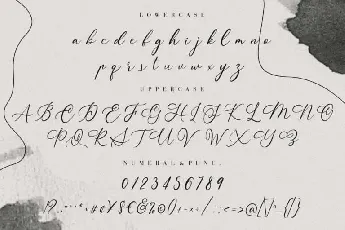 LOWERCASE
a b c d e f g h i j k l m n o
p q r s t u v w x y z
UPPERCASE
A B C D E F G H I J K L M N O
P Q R S T U V W X Y Z
NUMERAL & PUNC.
0 1 2 3 4 5 6 7 8 9